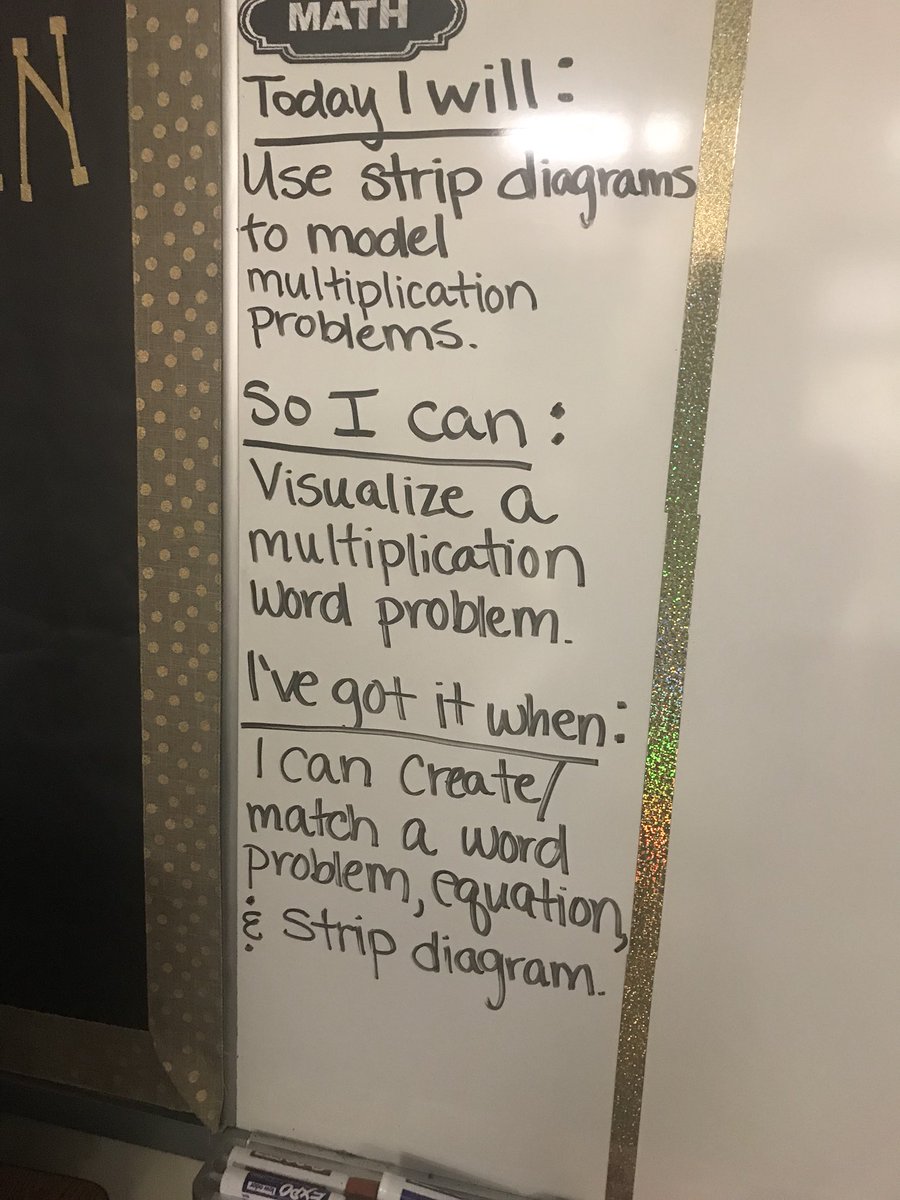 MATH
N
Today I will:
Use strip diagrams
to model
multiplication
problems.
So I can:
Visualize a
multiplication
word problem.
I've got it when:
I can create/
match a word
problem, equation,
& strip diagram.
EXPO